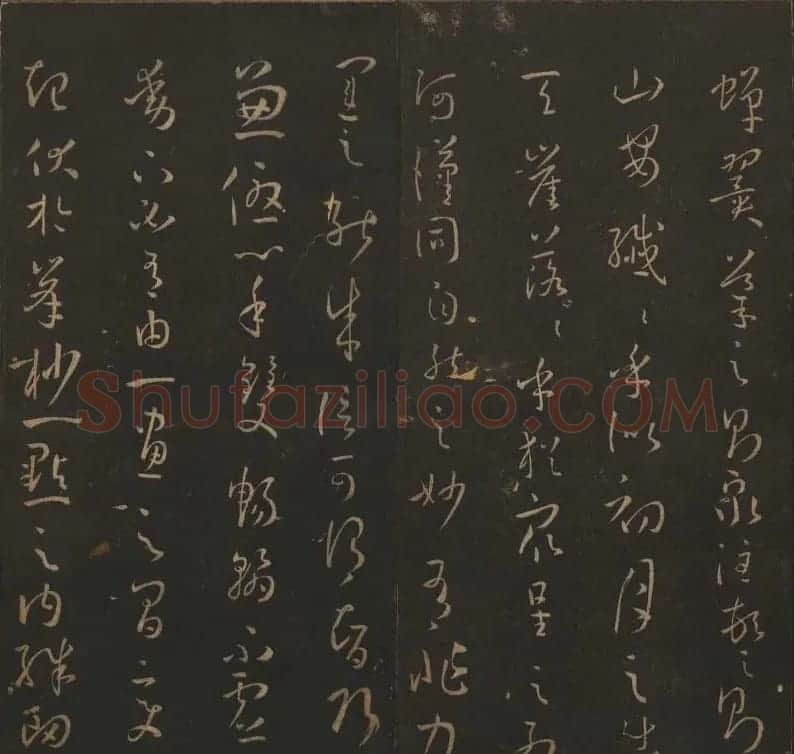 蟬翼導之則泉注頓之則
山安纖〻乎似初月之出
天崖落〻乎猶眾星之列
河漢同自然之妙有非力
運之能成信可謂智巧
兼優心手雙暢翰不虛
動下必有由一畫之間變
起伏於峯杪一點之內殊衄
Shufaziliao.COM